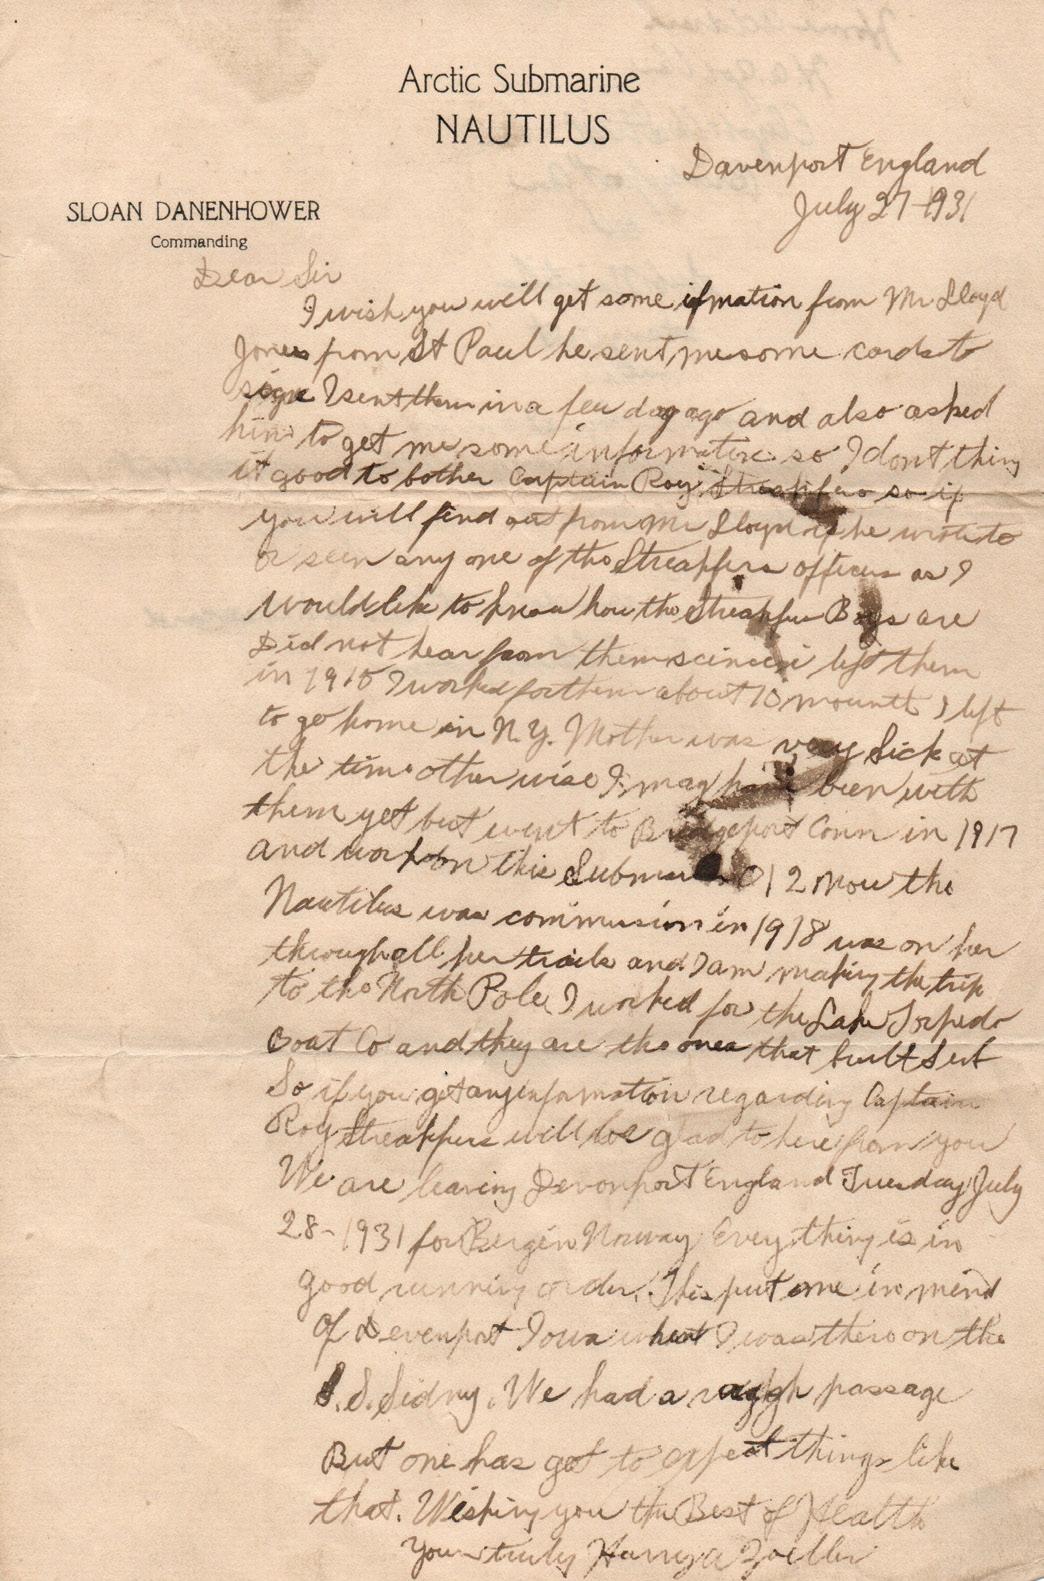 Arctic Submarine
NAUTILUS
Davenport England
July 27-1931
SLOAN DANENHOWER
Commanding
Dear Sir
I wish you will get some ifmation from Mr Lloyd
Jones from St Paul he sent me some cards to
sign I sent them in a few day ago and also asked
him to get me some information so I dont thing
it good to bother Captain Roy Streakfus so if
you will find out from Mr Lloyd if he wrote to
or seen any one of the Streakfus officers as I
would like to know how the Streakfus Boys are
Did not hear from them scince i left them
in 1910 I worked for them about 10 mounth I left
to go home in N.Y. Mother was very Sick at
the time other wise I may have been with
them yet but went to Bridgeport Conn in 1917
and work on this Submarine O12 now the
Nautilus was commission in 1918 was on her
through all her trails and I am making the trip
to the North Pole I worked for the Lake Torpedo
Boat Co and they are the ones that built Sub
So if you get any information regarding Captain
Roy Streakfus will be glad to here from you
We are leaving Devonport England Tuesday July
28-1931 for Bergen Norway Every thing is in
good running order. This put me in mind
of Devenport Iowa when I was there on the
S.S. Sidny. We had a rough passage
But one has got to expect things like
that. Wishing you the Best of Health
Yours truly Harry A Zoeller